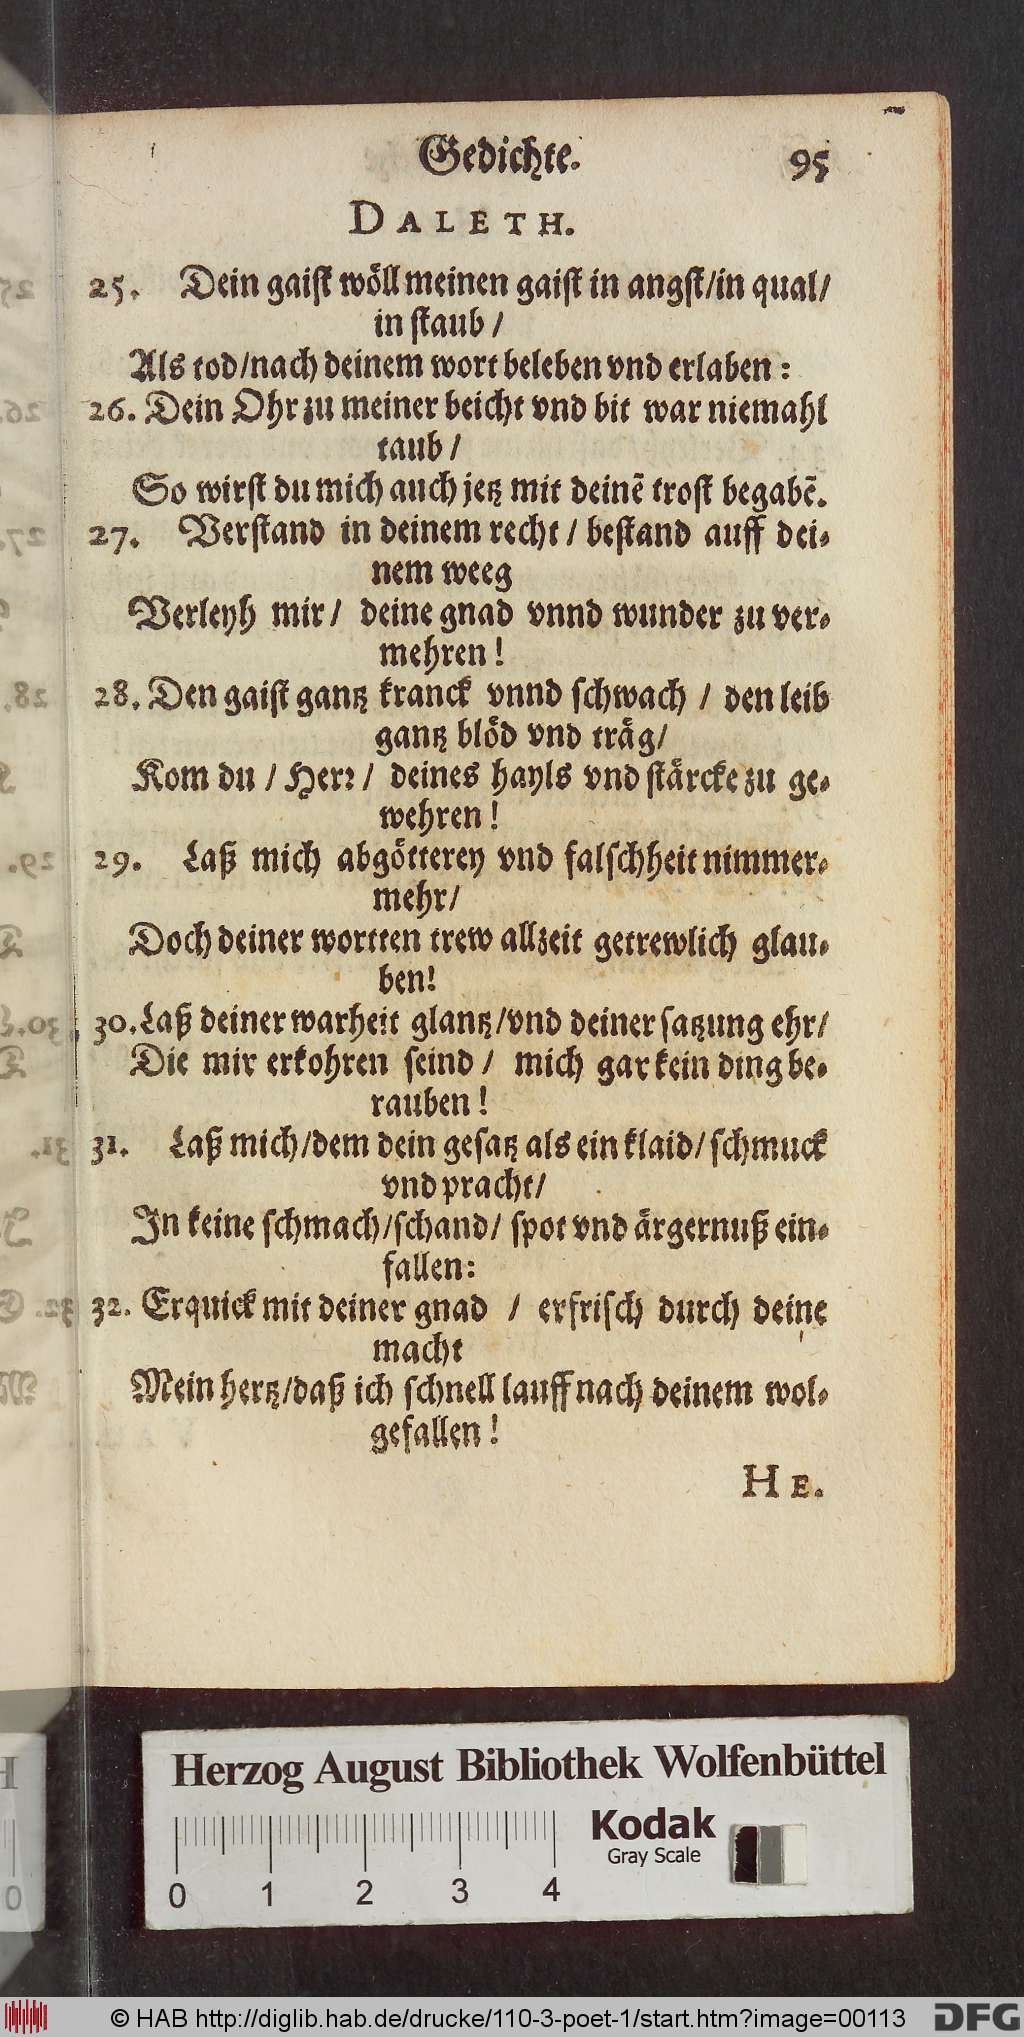 Gedichte. 95
DALETH.
25. Dein gaist wöll meinen gaist in angst/in qual/
in staub /
Als tod/nach deinem wort beleben vnd erlaben :
26. Dein Ohr zu meiner beicht vnd bit war niemahl
taub /
So wirst du mich auch jetz mit deinẽ trost begabẽ.
27. Verstand in deinem recht / bestand auff dei-
nem weeg
Verleyh mir / deine gnad vnnd wunder zu ver-
mehren !
28. Den gaist gantz kranck vnnd schwach / den leib
gantz blöd vnd träg/
Kom du / Herr / deines hayls vnd stärcke zu ge-
wehren !
29. Laß mich abgötterey vnd falschheit nimmer-
mehr/
Doch deiner wortten trew allzeit getrewlich glau-
ben!
30. Laß deiner warheit glantz/vnd deiner satzung ehr/
Die mir erkohren seind / mich gar kein ding be-
rauben !
31. Laß mich/dem dein gesatz als ein klaid/ schmuck
vnd pracht/
In keine schmach/schand/ spot vnd ärgernuß ein-
fallen:
32. Erquick mit deiner gnad / erfrisch durch deine
macht
Mein hertz/daß ich schnell lauff nach deinem wol-
gefallen !
HE.
Herzog August Bibliothek Wolfenbüttel
Kodak
Gray Scale
0 1 2 3 4
© HAB http://diglib.hab.de/drucke/110-3-poet-1/start.htm?image=00113
DFG